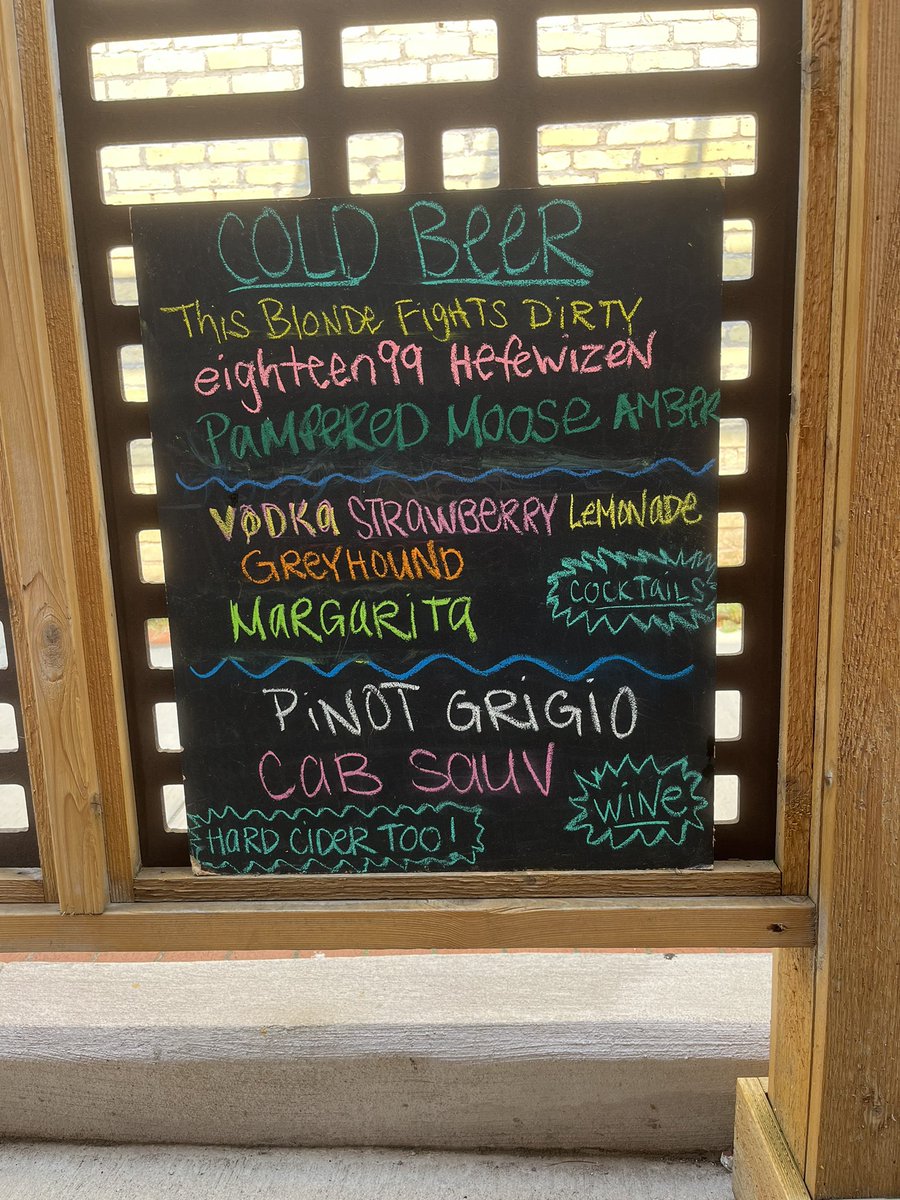 COLD BEER
THiS BLONDe FigHTS DiRTY
eighteen99 HefewizeN
PAMPERED MOOSE AMBER
VØDKA STRAWBERRY LeMONADe
GReYHOUND
COCKTAILS
MARGARiTA
PiNOT GRiGiO
CAB SAUV
WiNe
HARD CiDER TOO!